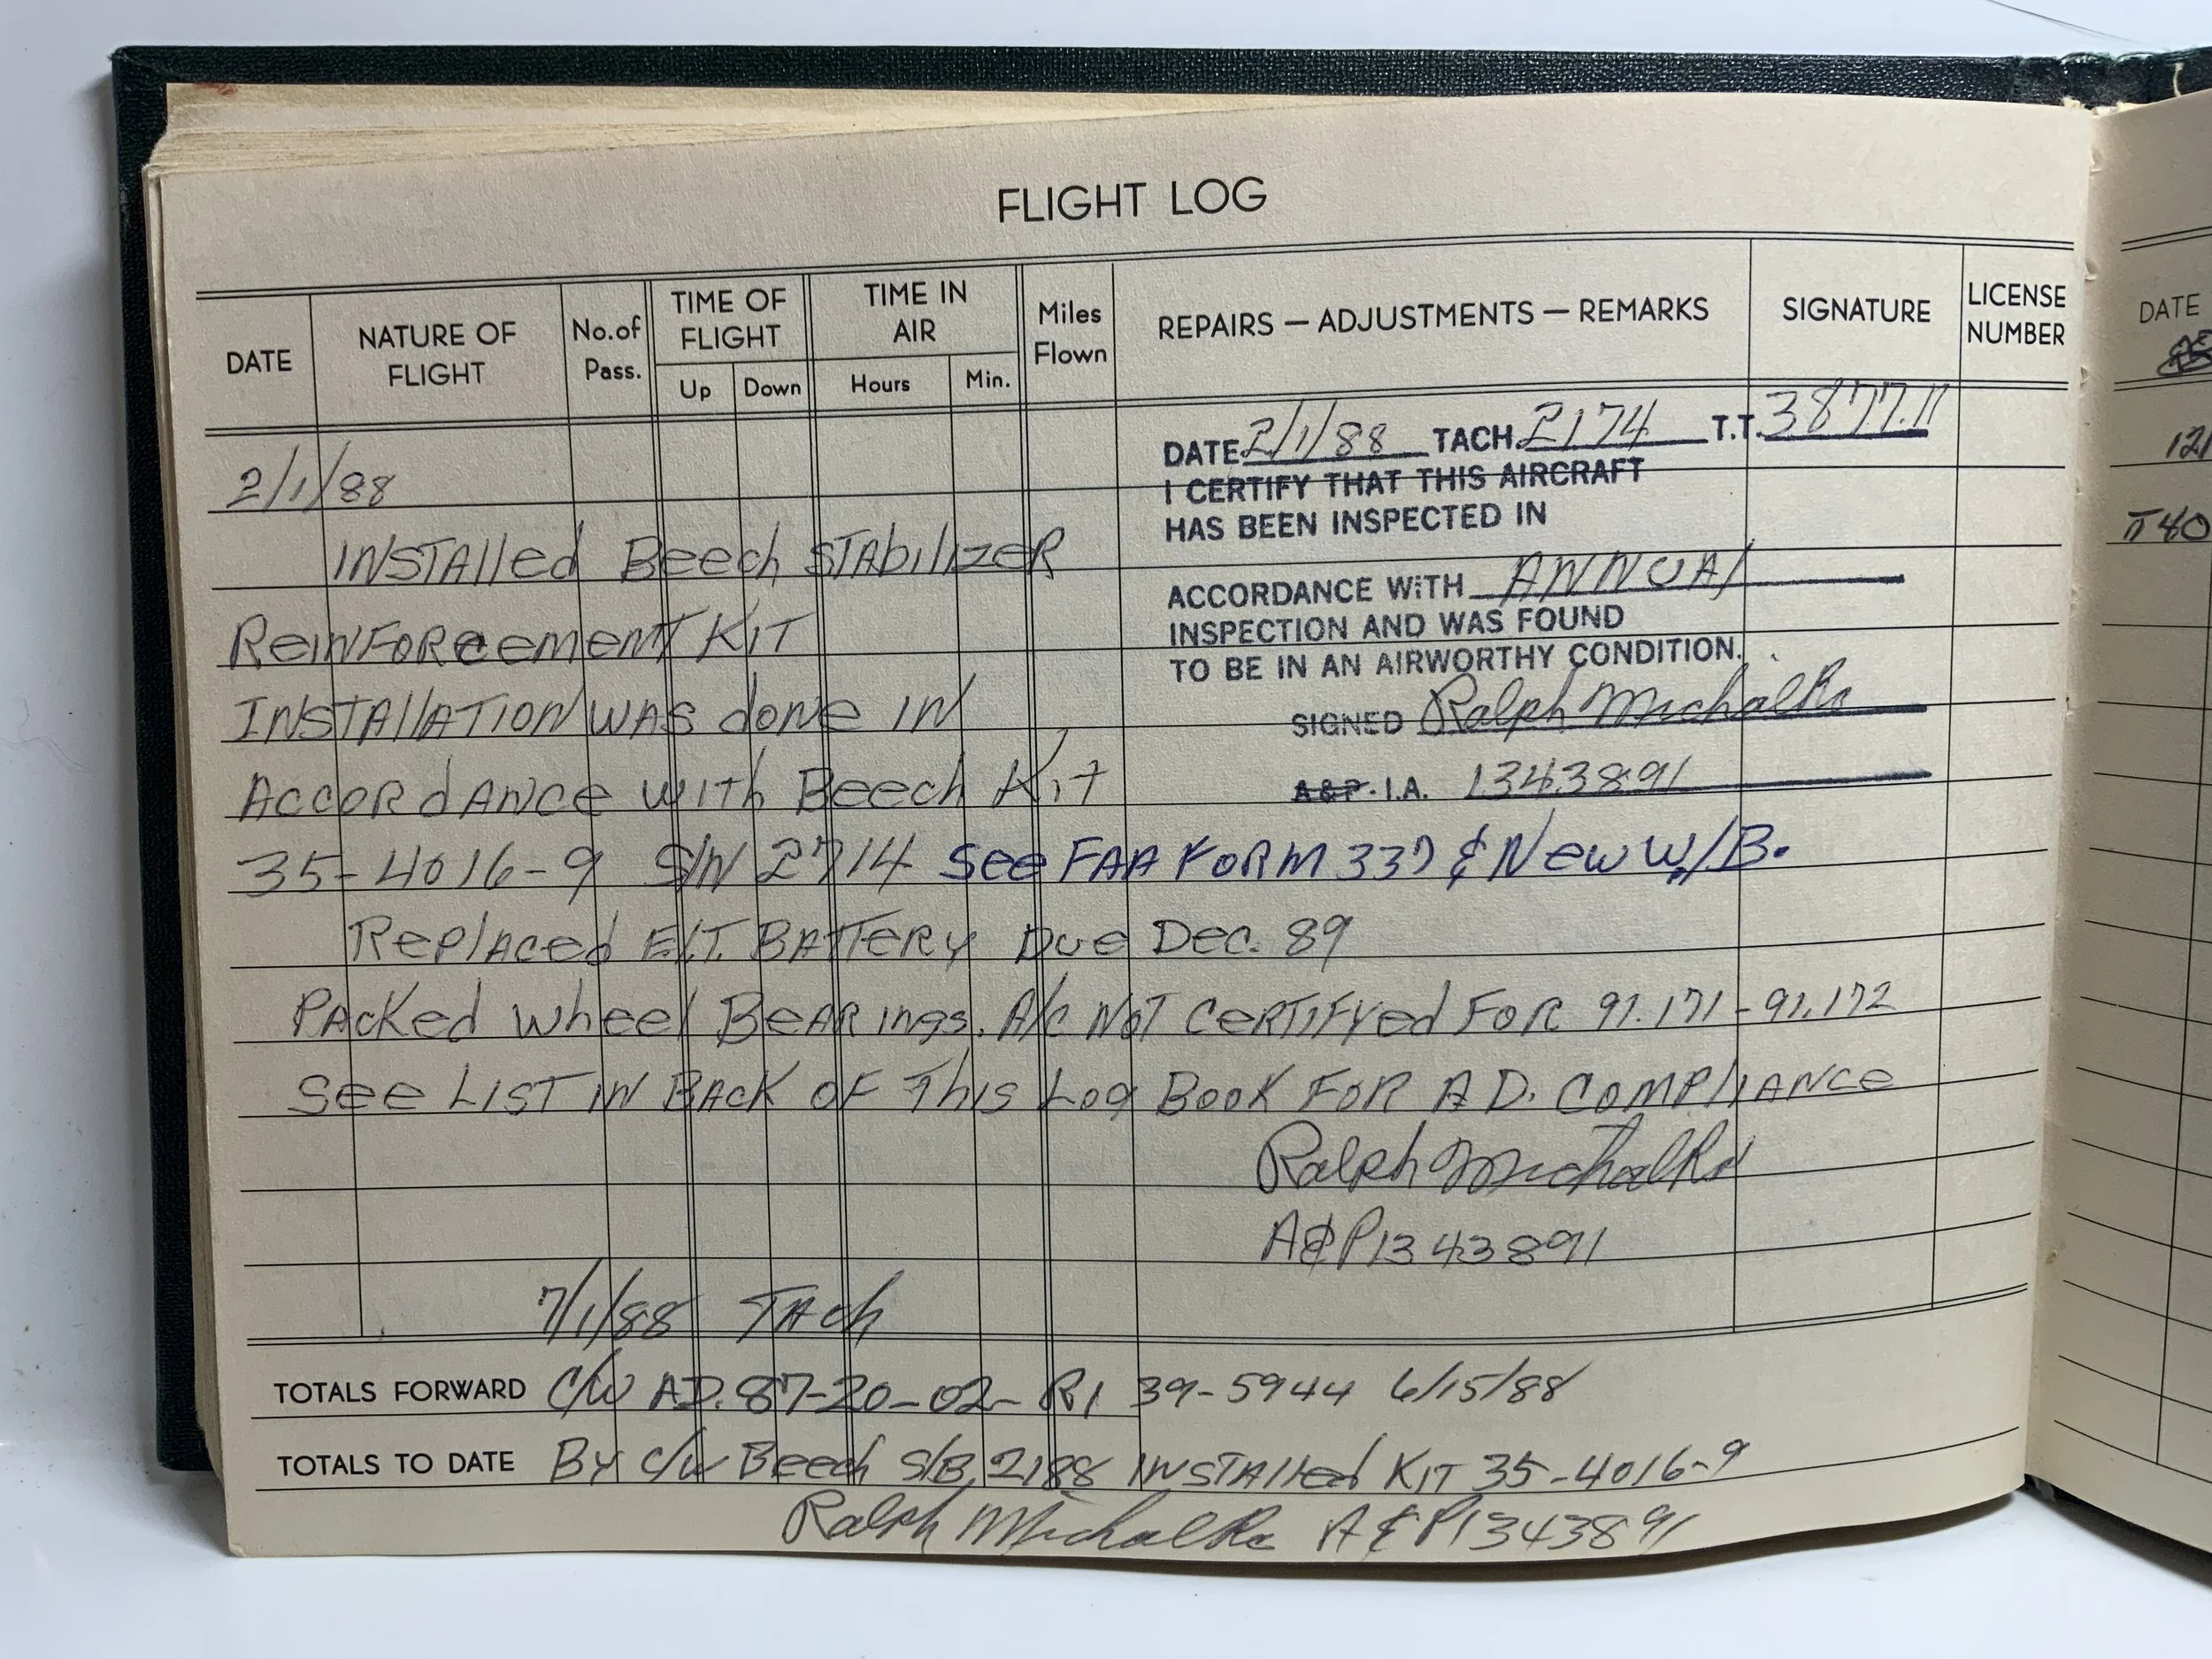 FLIGHT LOG
DATE
NATURE OF FLIGHT
No. of Pass.
TIME OF FLIGHT
Up
Down
TIME IN AIR
Hours
Min.
Miles Flown
REPAIRS — ADJUSTMENTS — REMARKS
SIGNATURE
LICENSE NUMBER
DATE 2/1/88 TACH. 2174 T.T. 3877.11
I CERTIFY THAT THIS AIRCRAFT
HAS BEEN INSPECTED IN
ACCORDANCE WITH ANNUAL
INSPECTION AND WAS FOUND
TO BE IN AN AIRWORTHY CONDITION.
SIGNED Ralph Michalke
A&P. I.A. 1343891
2/1/88
INSTAlled Beech STAbilizeR
ReiNFORcemenT KIT
INSTAllATION WAS done IN
AccoRdANce wiTh Beech KiT
35-4016-9 S/N 2714 See FAA FORM 337 & New W/B.
ReplAced E.L.T. BATTeRy Due Dec. 89
PAcKed wheel BeARings. A/C NoT CeRTiFyed FOR 91.171-91.172
See LIST IN BAcK OF This Log BOOK FOR A.D. COMPliANce
Ralph Michalke
A&P 1343891
7/1/88 TAch
TOTALS FORWARD C/W A.D. 87-20-02-R1 39-5944 6/15/88
TOTALS TO DATE By c/w Beech S/B, 2188 INSTAlled KIT 35-4016-9
Ralph Michalke A&P 1343891
DATE
121
T 40